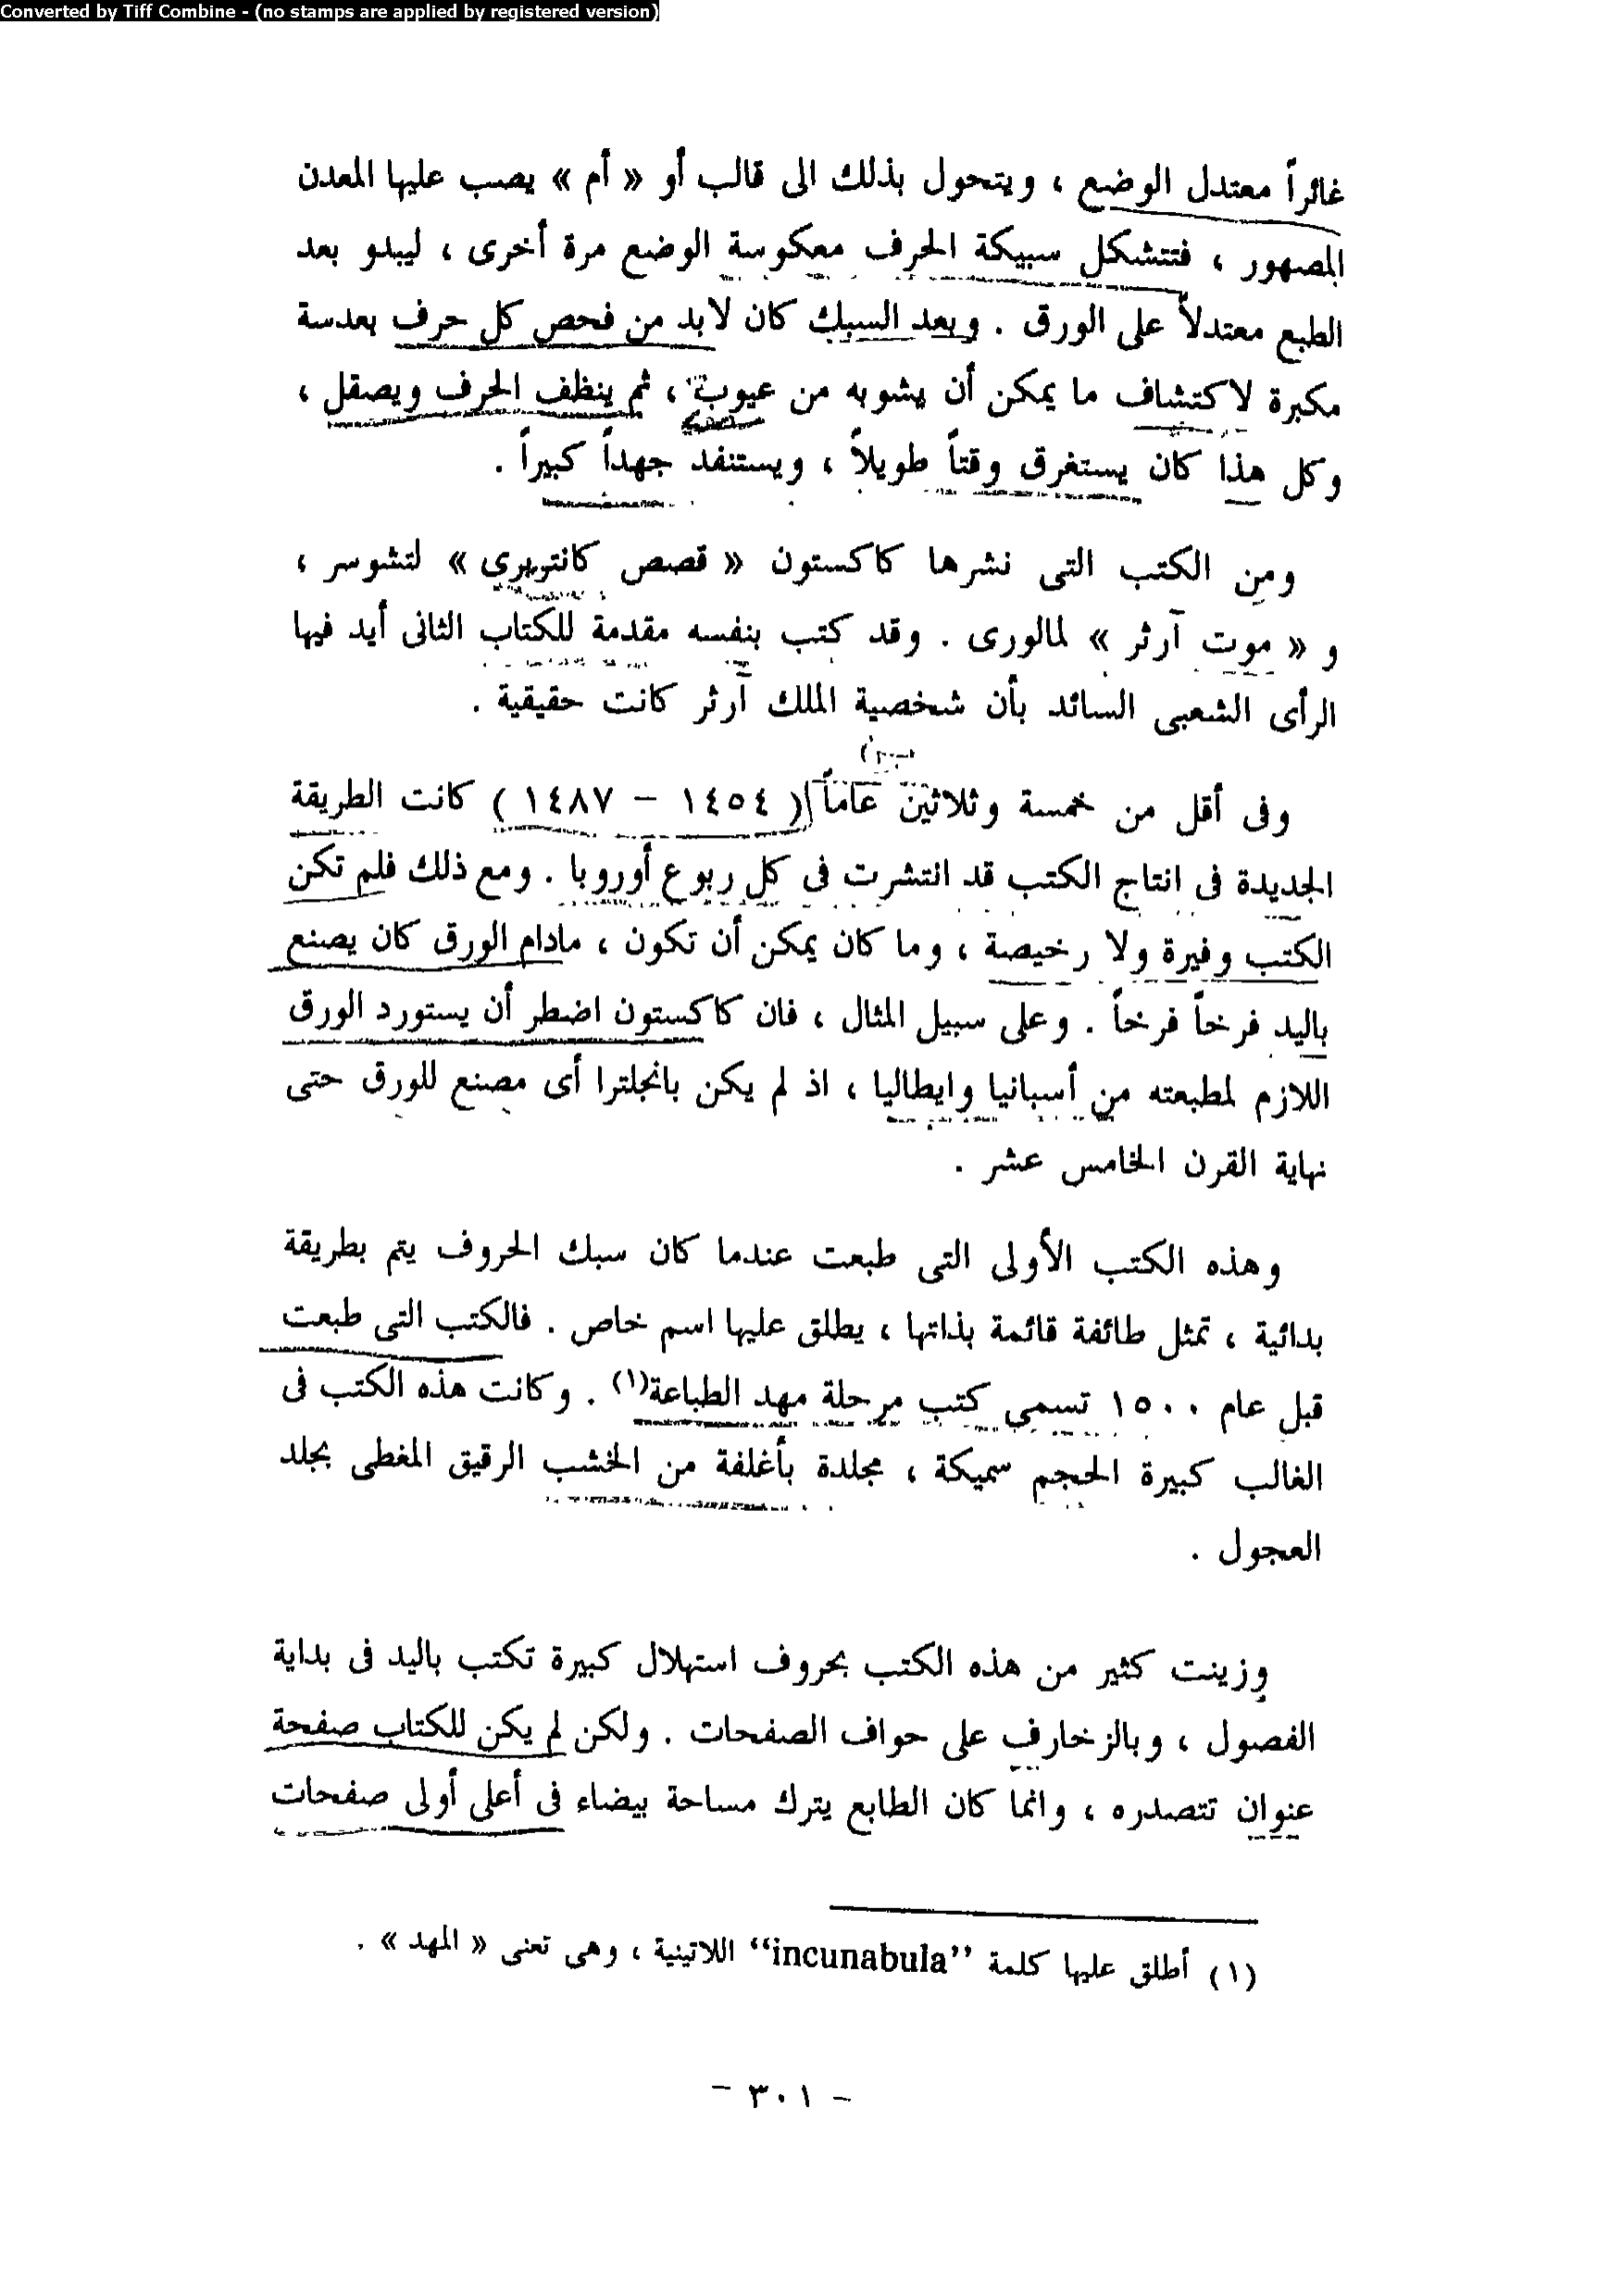 Converted by Tiff Combine - (no stamps are applied by registered version)
غائراً معتدل الوضع ، ويتحول بذلك الى قالب أو « أم » يصب عليها المعدن
المصهور ، فتتشكل سبيكة الحرف معكوسة الوضع مرة أخرى ، ليبدو بعد
الطبع معتدلاً على الورق . وبعد السبك كان لابد من فحص كل حرف بعدسة
مكبرة لاكتشاف ما يمكن أن يشوبه من عيوب ، ثم ينظف الحرف ويصقل ،
وكل هذا كان يستغرق وقتاً طويلاً ، ويستنفد جهداً كبيراً .
ومن الكتب التى نشرها كاكستون « قصص كانتربرى » لتشوسر ،
و « موت آرثر » لمالورى . وقد كتب بنفسه مقدمة للكتاب الثانى أيد فيها
الرأى الشعبى السائد بأن شخصية الملك آرثر كانت حقيقية .
وفى أقل من خمسة وثلاثين عاماً ( ١٤٥٤ – ١٤٨٧ ) كانت الطريقة
الجديدة فى انتاج الكتب قد انتشرت فى كل ربوع أوروبا . ومع ذلك فلم تكن
الكتب وفيرة ولا رخيصة ، وما كان يمكن أن تكون ، مادام الورق كان يصنع
باليد فرخاً فرخاً . وعلى سبيل المثال ، فان كاكستون اضطر أن يستورد الورق
اللازم لمطبعته من أسبانيا وايطاليا ، اذ لم يكن بانجلترا أى مصنع للورق حتى
نهاية القرن الخامس عشر .
وهذه الكتب الأولى التى طبعت عندما كان سبك الحروف يتم بطريقة
بدائية ، تمثل طائفة قائمة بذاتها ، يطلق عليها اسم خاص . فالكتب التى طبعت
قبل عام ١٥٠٠ تسمى كتب مرحلة مهد الطباعة(١) . وكانت هذه الكتب فى
الغالب كبيرة الحجم سميكة ، مجلدة بأغلفة من الخشب الرقيق المغطى بجلد
العجول .
وزينت كثير من هذه الكتب بحروف استهلال كبيرة تكتب باليد فى بداية
الفصول ، وبالزخارف على حواف الصفحات . ولكن لم يكن للكتاب صفحة
عنوان تتصدره ، وانما كان الطابع يترك مساحة بيضاء فى أعلى أولى صفحات
(١) أطلق عليها كلمة “incunabula” اللاتينية ، وهى تعنى « المهد » .
– ٣٠١ –